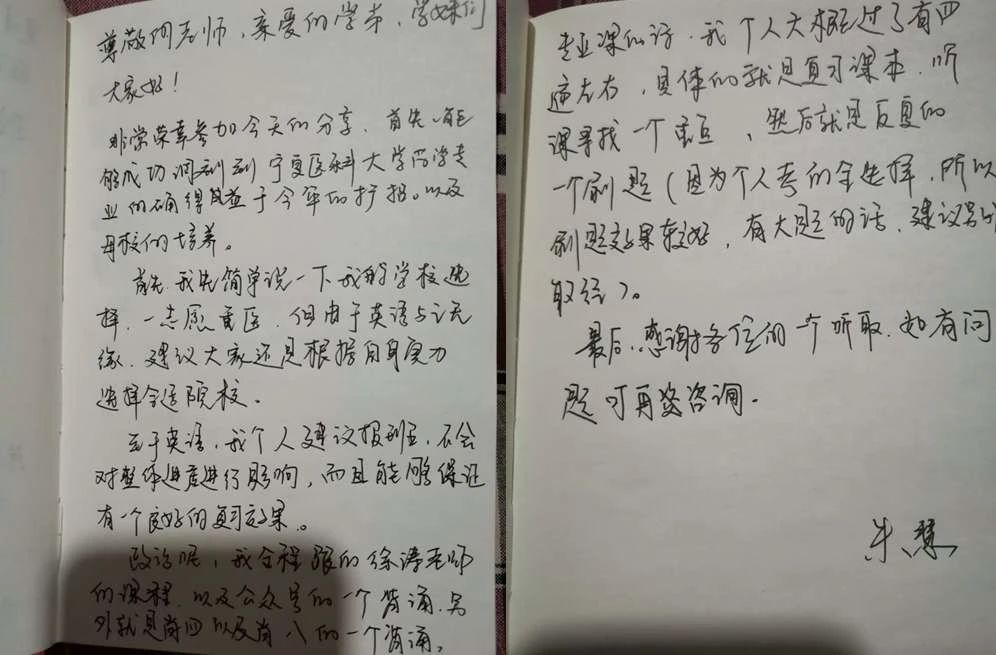 尊敬的老师,亲爱的学弟,学妹们
大家好!
非常荣幸参加今天的分享,首先,能
够成功调剂到宁夏医科大学药学专
业的确得益于今年的扩招。以及
母校的培养。
首先,我先简单说一下我的学校选
择,一志愿重医,但由于英语与之无
缘,建议大家还是根据自身实力
选择合适院校。
至于英语,我个人建议报班,不会
对整体进度进行影响,而且能够保证
有一个良好的复习效果。
政治呢,我全程跟的徐涛老师
的课程,以及公众号的一个背诵,另
外就是肖四以及肖八的一个背诵,
专业课的话,我个人大概过了有四
遍左右,具体的就是复习课本,听
课寻找一个重点,然后就是反复的
一个刷题(因为个人考的全选择,所以
刷题效果较好,有大题的话,建议另外
取经)。
最后,感谢各位的一个听取,如有问
题可再咨询。
朱慧